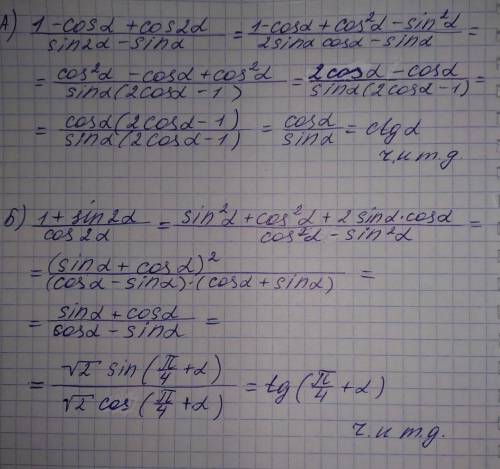 А) (1 - cosα + cos2α)/(sin2α - sinα) = (1 - cosα + cos²α - sin²α)/(2sinα cosα - sinα) =
= (cos²α - cosα + cos²α)/(sinα(2cosα - 1)) = (2cosα - cosα)/(sinα(2cosα - 1)) =
= (cosα(2cosα - 1))/(sinα(2cosα - 1)) = cosα/sinα = ctgα
ч.и т.д.
Б) (1 + sin2α)/(cos2α) = (sin²α + cos²α + 2sinα·cosα)/(cos²α - sin²α) =
= (sinα + cosα)²/((cosα - sinα)·(cosα + sinα)) =
= (sinα + cosα)/(cosα - sinα) =
= (√2 sin(π/4 + α))/(√2 cos(π/4 + α)) = tg(π/4 + α)
ч.и т.д.